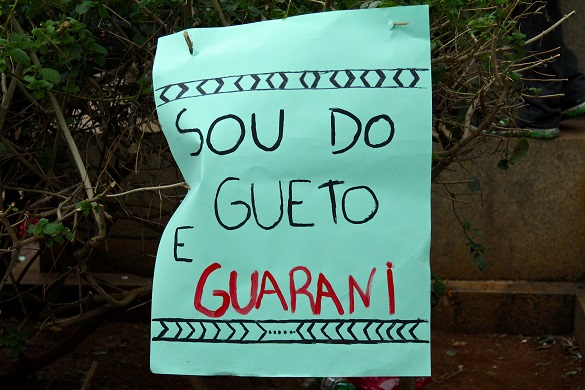 SOU DO
GUETO
E
GUARANI